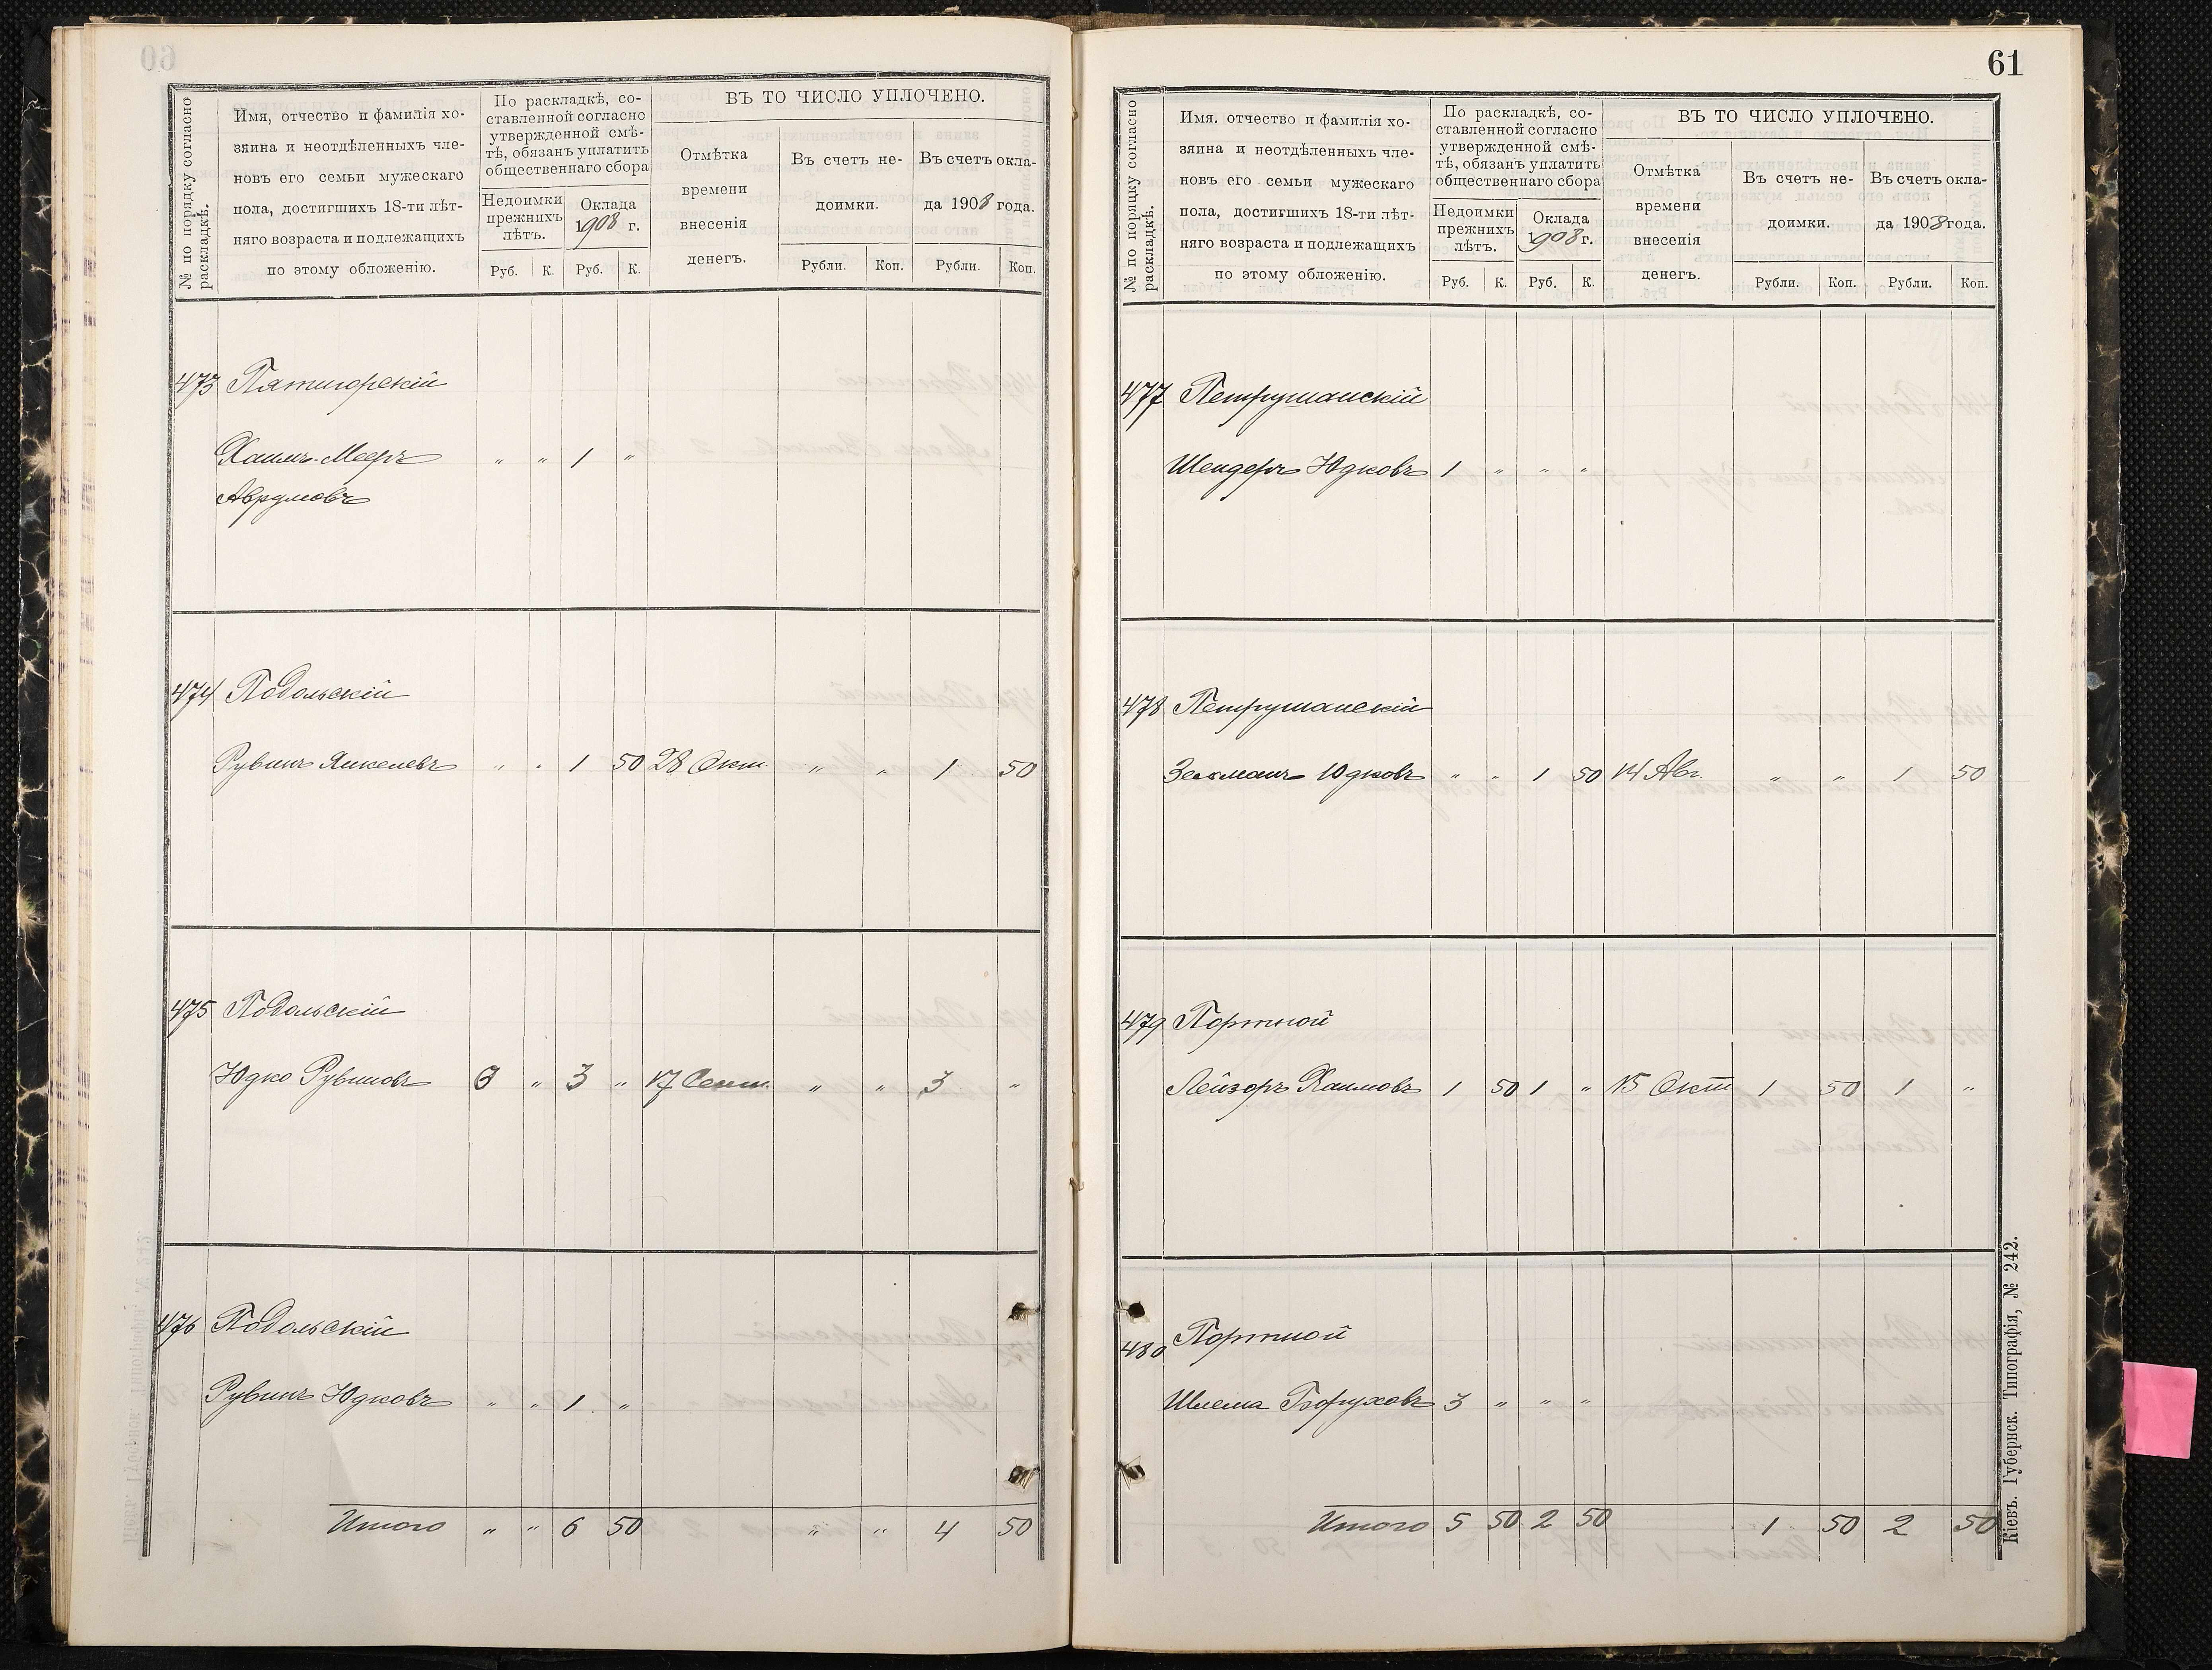 № по порядку согласно раскладкѣ.
Имя, отчество и фамилія хо-
зяина и неотдѣленныхъ чле-
новъ его семьи мужескаго
пола, достигшихъ 18-ти лѣт-
няго возраста и подлежащихъ
по этому обложенію.
По раскладкѣ, со-
ставленной согласно
утвержденной смѣ-
тѣ, обязанъ уплатить
общественнаго сбора
Недоимки прежнихъ лѣтъ.
Оклада 1908 г.
Руб. К. Руб. К.
ВЪ ТО ЧИСЛО УПЛОЧЕНО.
Отмѣтка
времени
внесенія
денегъ.
Въ счетъ не-
доимки.
Въ счетъ окла-
да 1908 года.
Рубли. Коп. Рубли. Коп.
473 Пятигорскій
Хаимъ-Мееръ " " 1 "
Аврумовъ
474 Подольскій
Рувинъ Янкелевъ " " 1 50 28 Окт. " " 1 50
475 Подольскій
Юдко Рувиновъ " 3 " 17 Сент. " " 3 "
476 Подольскій
Рувинъ Юдковъ " " 1 "
Итого " " 6 50 " " 4 50
61
№ по порядку согласно раскладкѣ.
Имя, отчество и фамилія хо-
зяина и неотдѣленныхъ чле-
новъ его семьи мужескаго
пола, достигшихъ 18-ти лѣт-
няго возраста и подлежащихъ
по этому обложенію.
По раскладкѣ, со-
ставленной согласно
утвержденной смѣ-
тѣ, обязанъ уплатить
общественнаго сбора
Недоимки прежнихъ лѣтъ.
Оклада 1908 г.
Руб. К. Руб. К.
ВЪ ТО ЧИСЛО УПЛОЧЕНО.
Отмѣтка
времени
внесенія
денегъ.
Въ счетъ не-
доимки.
Въ счетъ окла-
да 1908 года.
Рубли. Коп. Рубли. Коп.
477 Петрушанскій
Шендеръ Юдковъ 1 " " "
478 Петрушанскій
Зельманъ Юдковъ " " 1 50 14 Авг. " " 1 50
479 Портной
Лейзоръ Хаимовъ 1 50 1 " 15 Окт 1 50 1 "
480 Портной
Шлема Боруховъ 3 " " "
Итого 5 50 2 50 1 50 2 50
Кіевъ. Губернск. Типографія, № 242.